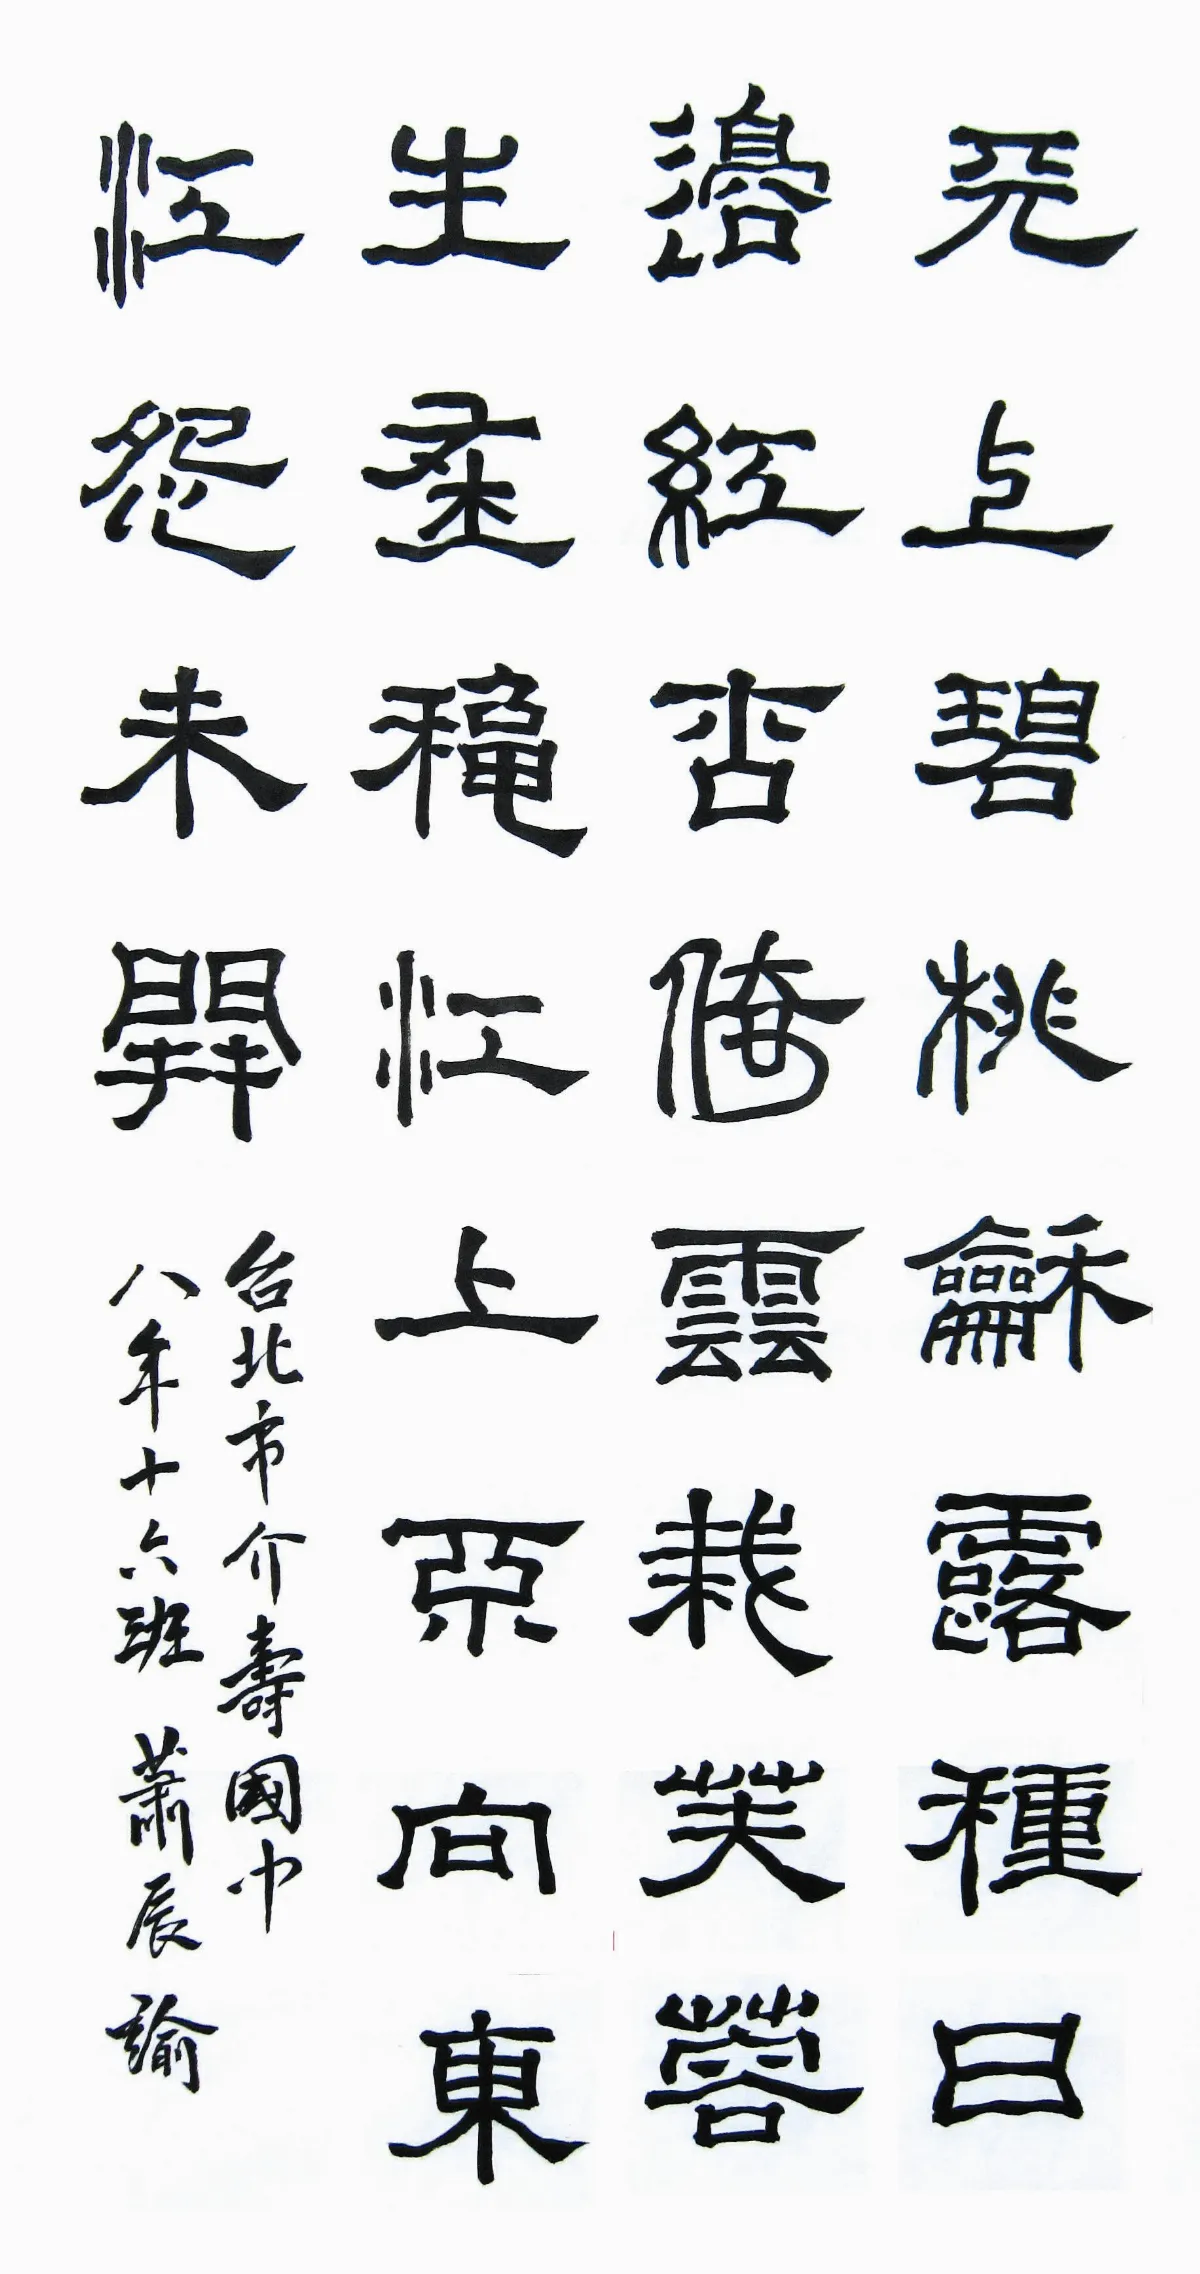 天上碧桃龢露種日
邊紅杏倚雲栽芙蓉
生在穐江上不向東
江怨未開
台北市介壽國中
八年十六班 蕭辰諭